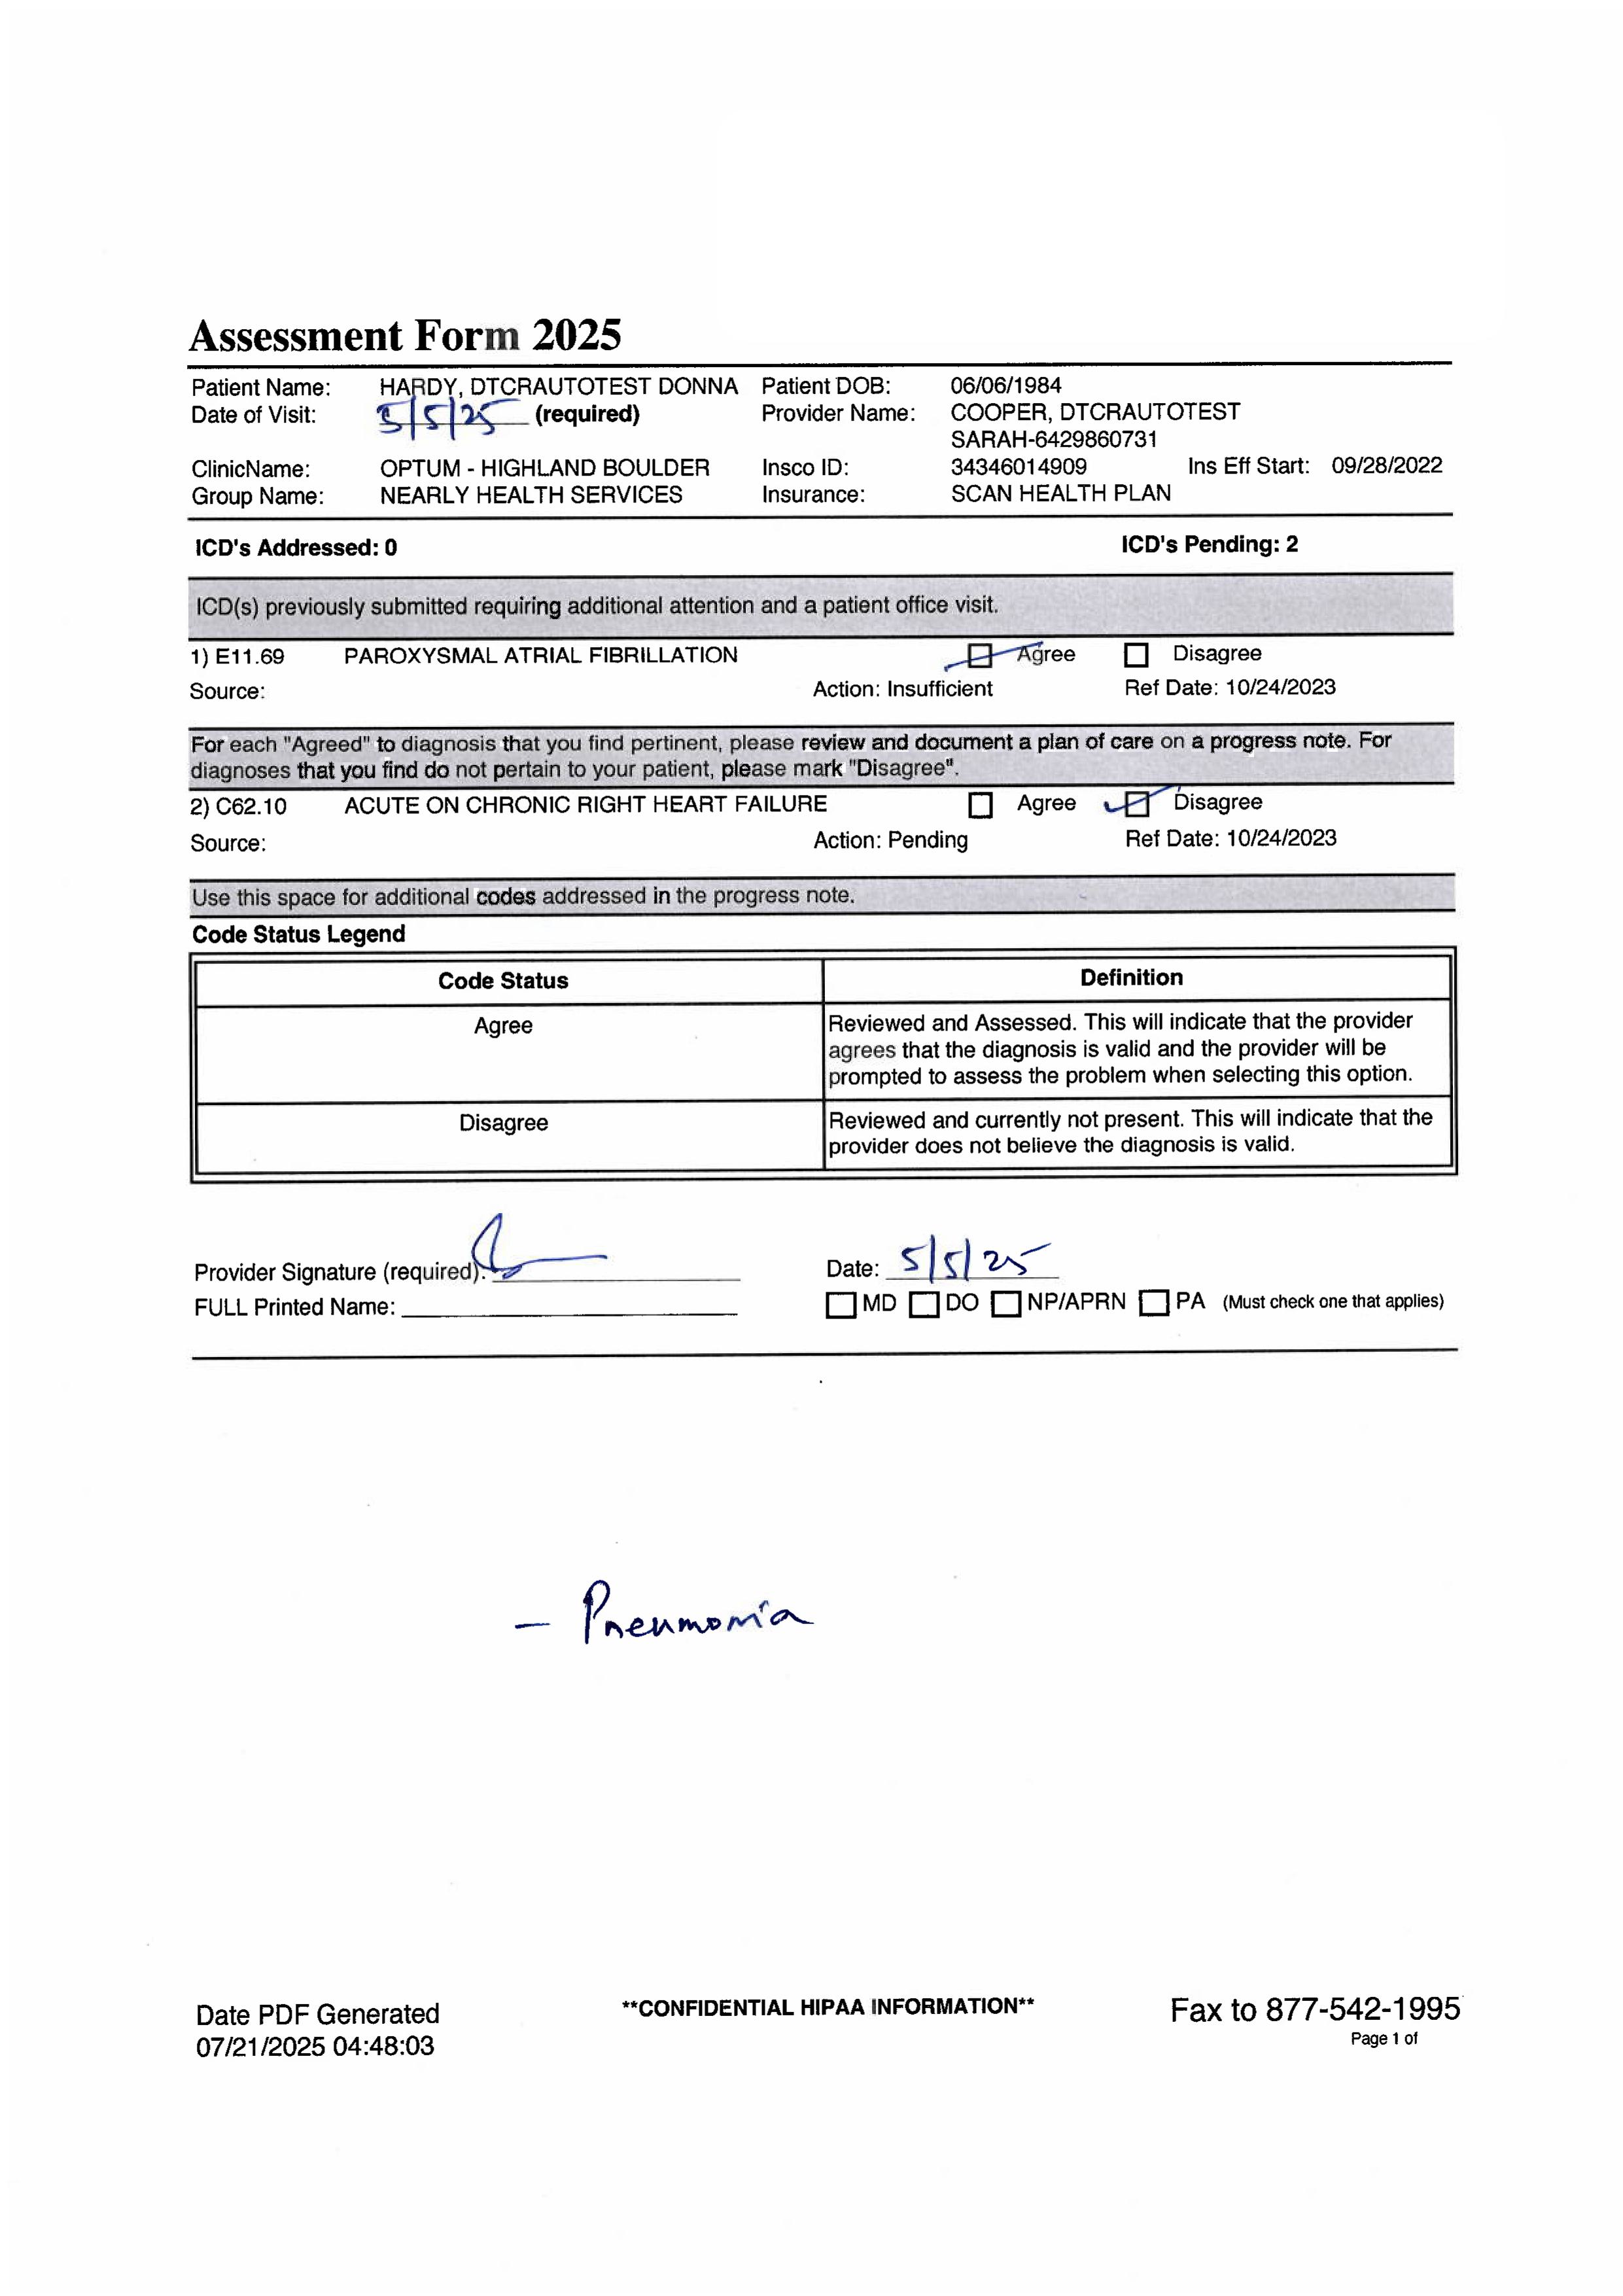 Assessment Form 2025
Patient Name: HARDY, DTCRAUTOTEST DONNA Patient DOB: 06/06/1984
Date of Visit: 5/5/25 (required) Provider Name: COOPER, DTCRAUTOTEST
SARAH-6429860731
ClinicName: OPTUM - HIGHLAND BOULDER Insco ID: 34346014909 Ins Eff Start: 09/28/2022
Group Name: NEARLY HEALTH SERVICES Insurance: SCAN HEALTH PLAN
ICD's Addressed: 0 ICD's Pending: 2
ICD(s) previously submitted requiring additional attention and a patient office visit.
1) E11.69 PAROXYSMAL ATRIAL FIBRILLATION Agree Disagree
Source: Action: Insufficient Ref Date: 10/24/2023
For each "Agreed" to diagnosis that you find pertinent, please review and document a plan of care on a progress note. For
diagnoses that you find do not pertain to your patient, please mark "Disagree".
2) C62.10 ACUTE ON CHRONIC RIGHT HEART FAILURE Agree Disagree
Source: Action: Pending Ref Date: 10/24/2023
Use this space for additional codes addressed in the progress note.
Code Status Legend
Code Status Definition
Agree Reviewed and Assessed. This will indicate that the provider
agrees that the diagnosis is valid and the provider will be
prompted to assess the problem when selecting this option.
Disagree Reviewed and currently not present. This will indicate that the
provider does not believe the diagnosis is valid.
Provider Signature (required): Date: 5/5/25
FULL Printed Name: MD DO NP/APRN PA (Must check one that applies)
- Pneumonia
Date PDF Generated **CONFIDENTIAL HIPAA INFORMATION** Fax to 877-542-1995
07/21/2025 04:48:03 Page 1 of